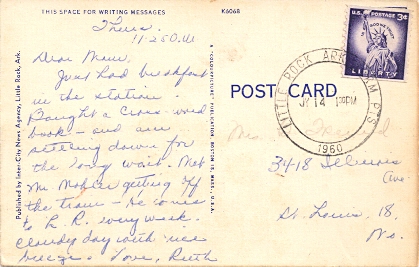 THIS SPACE FOR WRITING MESSAGES
K6068
Thurs.
11:250.M
Dear Mimi,
Just had breakfast
in the station.
Bought a cross-word
book - and am
settling down for
the long wait. Met
Mr. getting off
the train - He comes
to L. R. every week.
cloudy day with nice
breeze. Love, Ruth
Published by Inter-City News Agency, Little Rock, Ark.
POST CARD
U.S. POSTAGE 3¢
IN GOD WE TRUST
LIBERTY
LITTLE ROCK, ARK.
14
PM
1960
Mrs.
3418 Illinois
Ave
St. Louis, 18,
Mo.